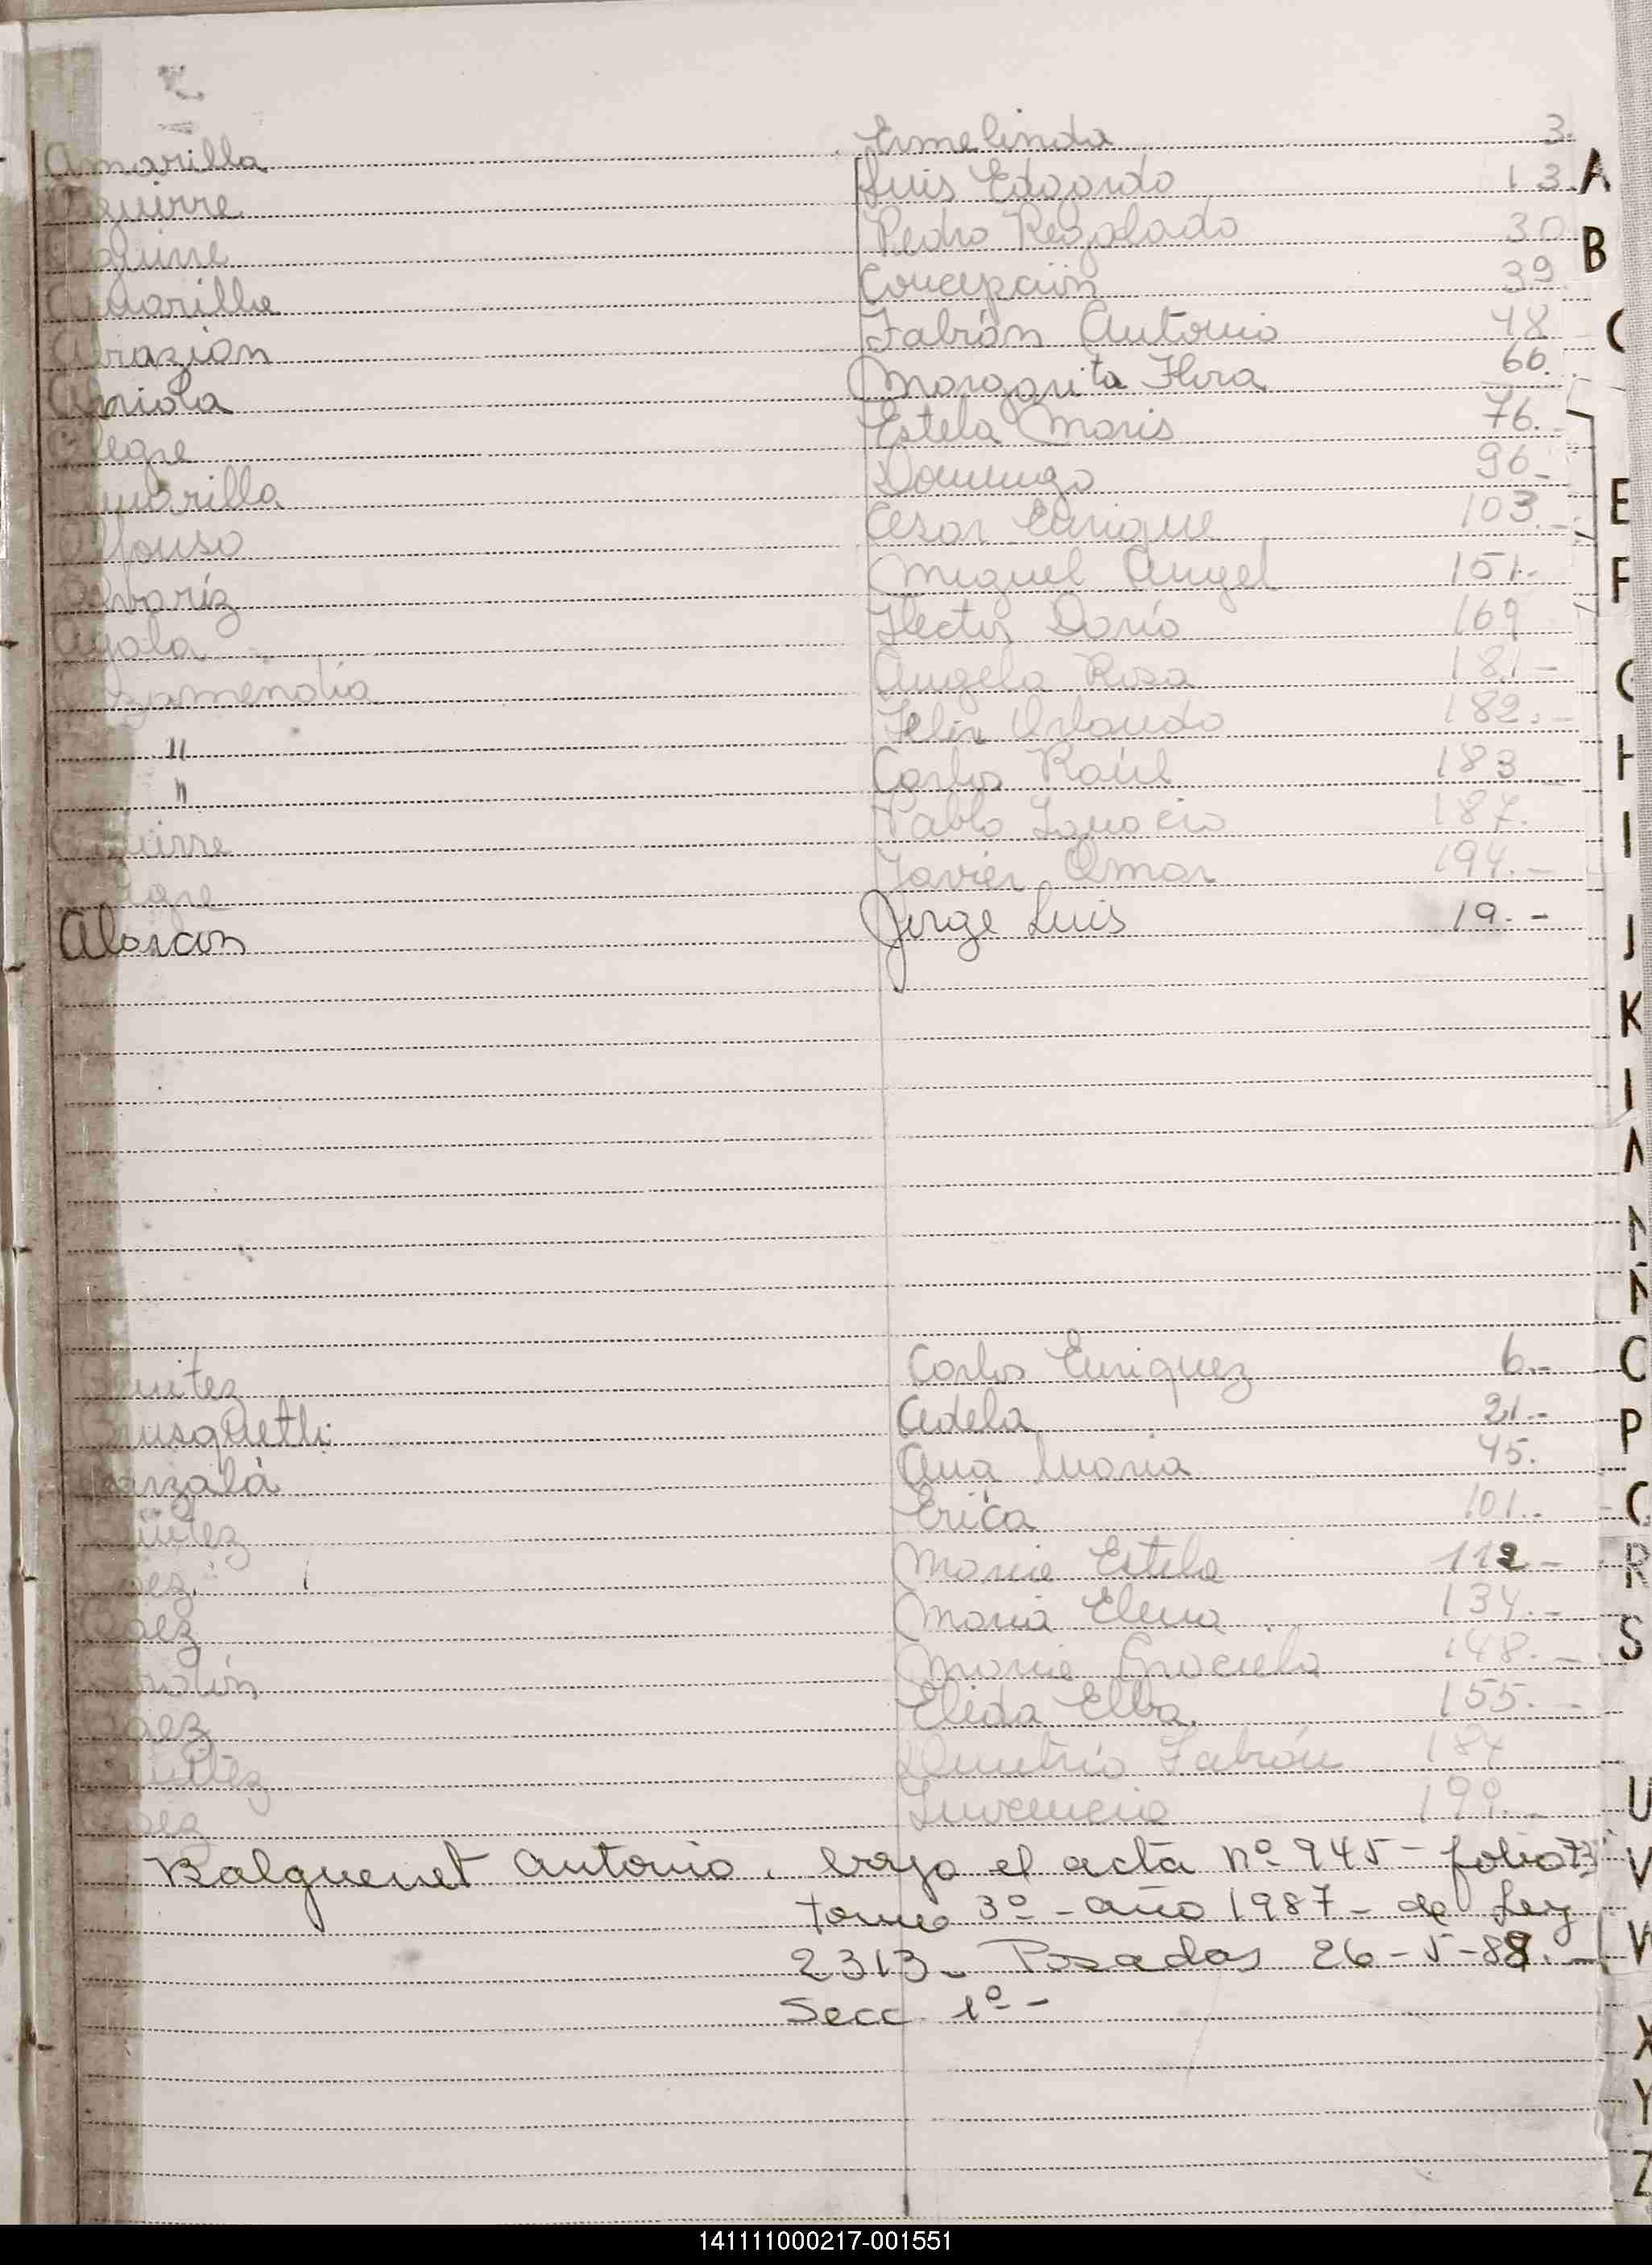 Amarilla Ermelinda 3.
Aguirre Luis Edgardo 13.
Aguirre Pedro Regalado 30
Amarilla Concepción 39
Fabián Antonio 48
Arriola Margarita Flora 66.
Alegre Estela Maris 76.
Amarilla Domingo 96-
Alfonso Cesar Enrique 103.-
Alvariz Miguel Angel 151.-
Ayala Hector Darío 169
Azamendia Angela Rosa 181-
" Felix Orlando 182.-
" Carlos Raúl 183
Aguirre Pablo Ignacio 187.
Javier Omar 194.-
Alarcon Jorge Luis 19.-
Benitez Carlos Enriquez 6.-
Brusquetti Adela 21.-
Barzalá Ana Maria 45.
Benitez Erica 101.-
Baez Maria Estela 112.-
Baez Maria Elena 134.-
Maria Graciela 148.-
Baez Elida Elba 155.-
Benitez Demetrio Fabián 184
Baez Juvencio 199.-
Balguenet Antonio. bajo el acta nº 945- folio 73
tomo 3º - año 1987- de Ley
2313- Posadas 26-5-88.-
Secc 1º-
A
B
C
E
F
G
H
I
J
K
P
R
S
U
V
W
X
Y
Z
141111000217-001551